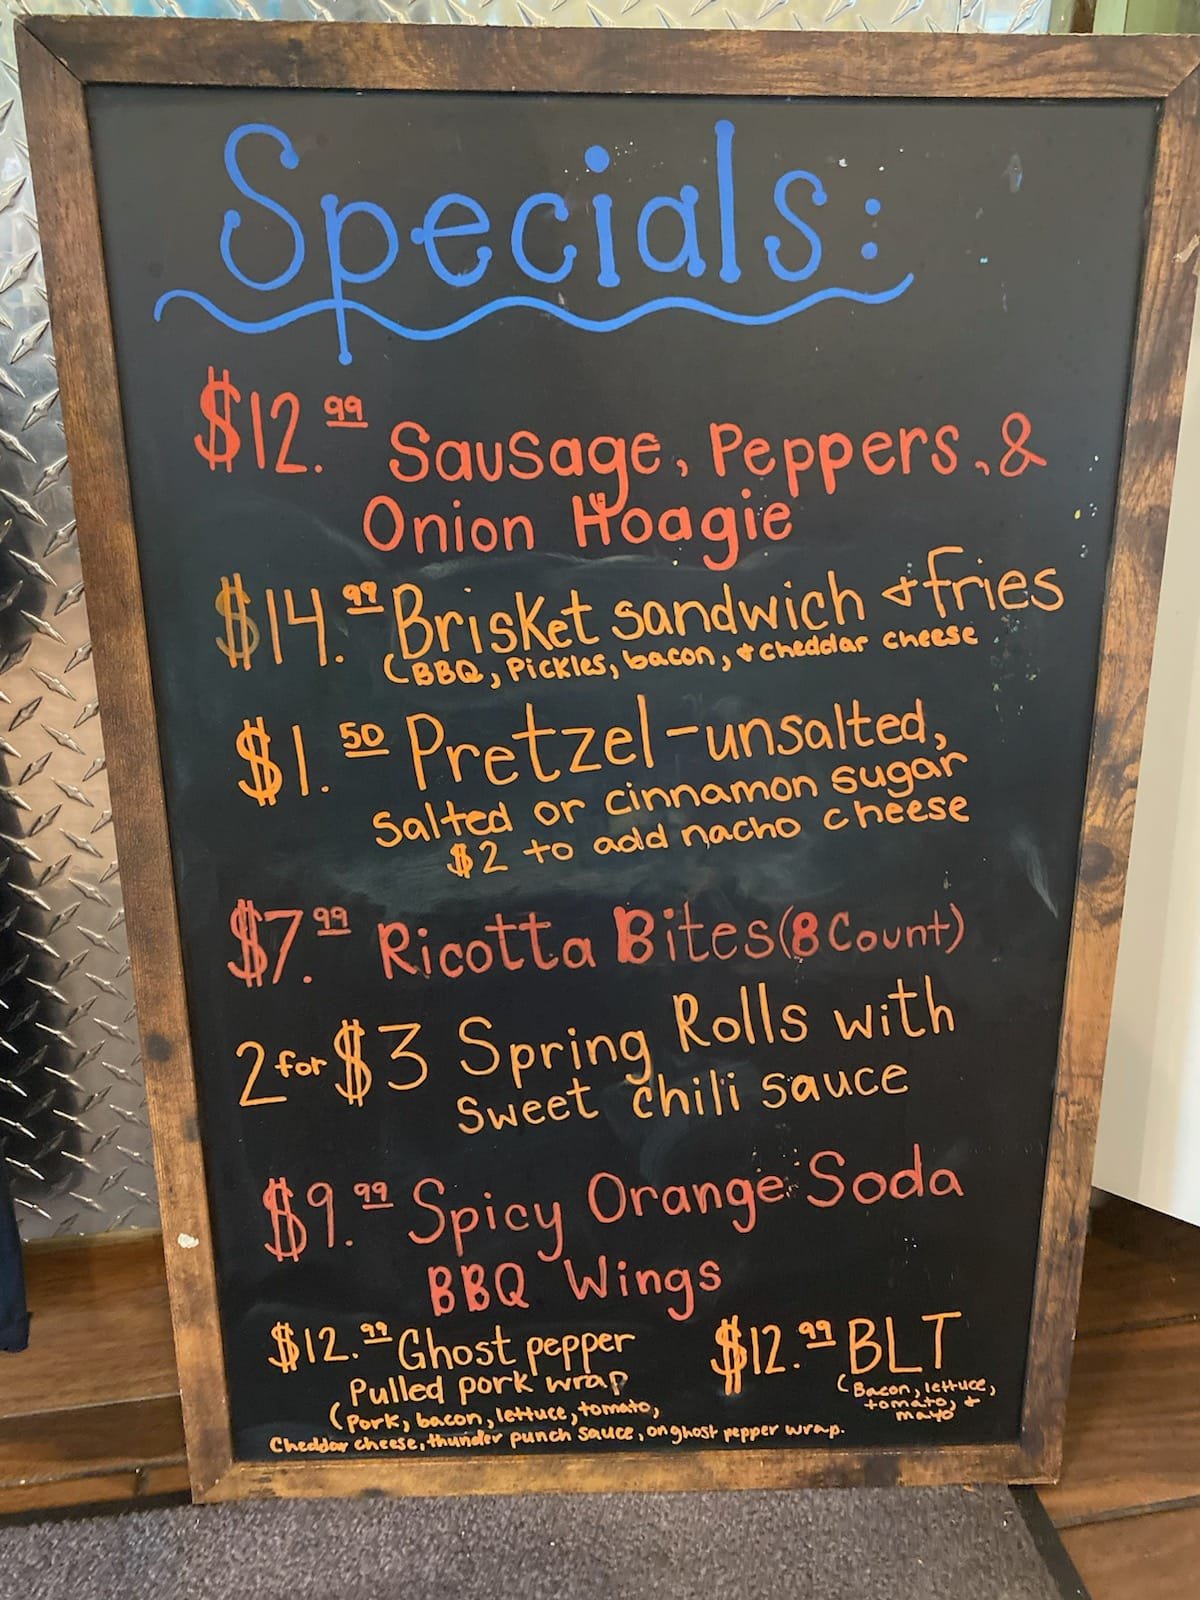 Specials:
$12.99 Sausage, Peppers, &
Onion Hoagie
$14.99 Brisket sandwich & fries
(BBQ, Pickles, bacon, & cheddar cheese
$1.50 Pretzel-unsalted,
Salted or cinnamon sugar
$2 to add nacho cheese
$7.99 Ricotta Bites (8 Count)
2 for $3 Spring Rolls with
Sweet chili sauce
$9.99 Spicy Orange Soda
BBQ Wings
$12.99 Ghost pepper
Pulled pork wrap
(Pork, bacon, lettuce, tomato,
Cheddar cheese, thunder punch sauce, on ghost pepper wrap.
$12.99 BLT
(Bacon, lettuce,
tomato, &
mayo